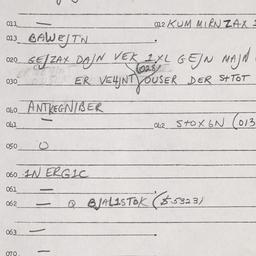 011 — 012 KUM MIRN ZAX
013 BAWEJTN
020 GEJZAX DAJN VEK 1XL GEJN MAJN
(023)
030 ER VEHJNT OUSER DER STOT
040 ANTKEGNIBER
041 — 042 STOXGN (013
050 O
060 IN ERGIC
061 —
062 — Q BJALISTOK (S 5323)
063 —
070 —